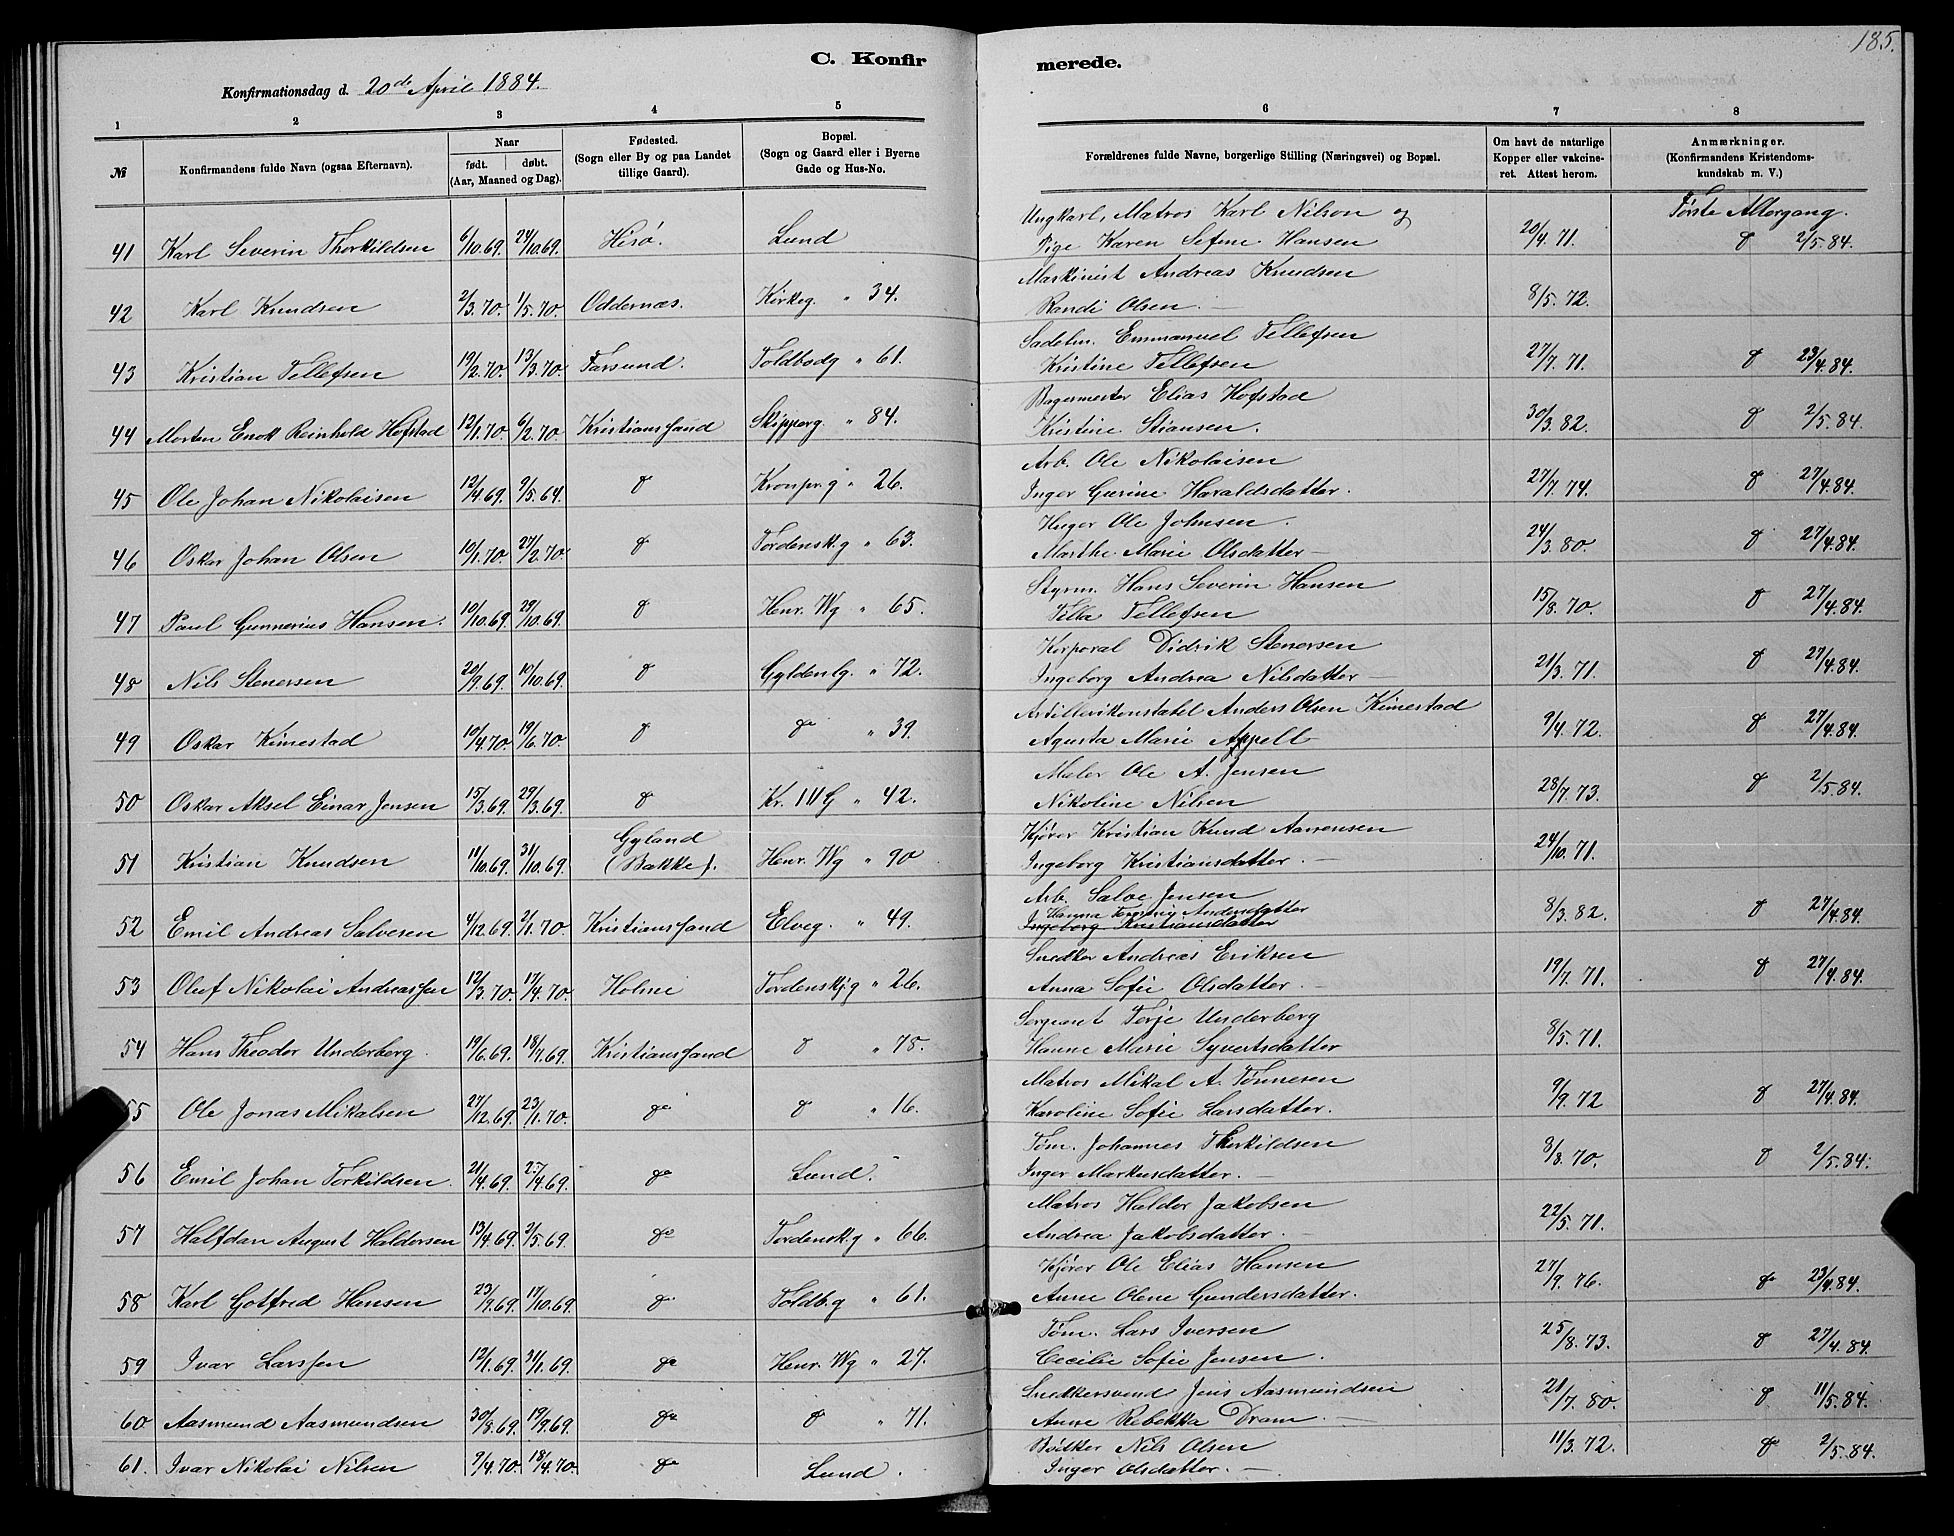 185.
C. Konfirmerede.
Konfirmationsdag d. 20de April 1884.
1 2 3 4 5 6 7 8
№ Konfirmandens fulde Navn (ogsaa Efternavn). Naar født. døbt. (Aar, Maaned og Dag). Fødested. (Sogn eller By og paa Landet tillige Gaard). Bopæl. (Sogn og Gaard eller i Byerne Gade og Hus-No. Forældrenes fulde Navne, borgerlige Stilling (Næringsvei) og Bopæl. Om havt de naturlige Kopper eller vakcineret. Attest herom. Anmærkninger. (Konfirmandens Kristendomskundskab m. V.)
Ungkarl, Matros Karl Nilson og Første Altergang.
41 Karl Severin Thorkildsen 6/10.69. 24/10.69. Hisø. Lund Pige Karen Sefine Hansen 20/4.71. do 2/5.84.
Maskinist Andreas Knudsen
42 Karl Knudsen 2/3.70. 1/5.70. Oddernæs. Kirkeg. " 34. Randi Olsen. 8/5.72.
Sadelm. Emmanuel Tellefsen
43 Kristian Tellefsen 19/2.70. 13/3.70. Farsund. Toldbodg " 61. Kristine Tellefsen 27/7.71. do 23/4.84.
Bagermester Elias Hofstad
44 Morten Enok Reinhold Hofstad 12/1.70. 6/2.70. Kristianssand Skipperg. " 84. Kristine Stiansen. 30/3.82. do 2/5.84.
Arb. Ole Nikolaisen
45 Ole Johan Nikolaisen 12/4.69. 9/5.64. do Kronpr.g " 26. Inger Gurine Haraldsdatter. 27/7.74. do 27/4.84.
Ole Johnsen.
46 Oskar Johan Olsen 10/1.70. 27/2.70. do Tordensk.g " 63. Marthe Marie Olsdatter 24/3.80. do 27/4.84.
Styrm. Hans Severin Hansen
47 Paul Gunnerius Hansen. 10/10.69. 29/10.69. do Henr. Wg " 65. Tellefsen 15/8.70. do 27/4.84.
Korporal Didrik Stenersen
48 Nils Stenersen 20/9.69. 10/10.69. do Gyldenlg. " 72. Ingeborg Andrea Nilsdatter 21/3.71. do 27/4.84.
Artillerikonstabel Anders Olsen Kimestad
49 Oskar Kimestad 10/4.70. 19/6.70. do do " 39. Agusta Marie Appelt 9/4.72. do 27/4.84.
Maler Ole A. Jensen
50 Oskar Aksel Einar Jensen 15/3.69. 29/3.69. do Kr. IV G " 42. Nikoline Nilsen 28/7.73. do 2/5.84.
Gyland Kjører Kristian Knud Aanensen
51 Kristian Knudsen 11/10.69. 31/10.69. (Bakke). Henr. Wg " 90 Ingeborg Kristiansdatter. 24/10.71.
Arb. Salve Jensen
Hanna Andersdatter
52 Emil Andreas Salvesen 4/12.69. 2/1.70. Kristianssand Elveg. " 49. Ingeborg Kristiansdatter 8/3.82. do 27/4.84.
Snedker Andreas Eriksen
53 Oluf Nikolai Andreassen 12/3.70. 17/4.70. Holme Tordenskj.g " 26. Anna Sofie Olsdatter. 19/7.71. do 27/4.84.
Sergeant Terje Underberg
54 Hans Theodor Underberg. 19/6.69. 18/7.69. Kristianssand do " 78. Hanne Marie Syvertsdatter 8/5.71.
Matros Mikal A. Tønnesen
55 Ole Jonas Mikalsen 27/12.69. 23/1.70. do do " 16. Karoline Sofie Larsdatter. 9/9.72 do 27/4.84.
Tøm. Johannes Thorkildsen
56 Emil Johan Torkildsen. 21/4.69. 27/4.69. do Lund. Inger Markusdatter. 8/8.70. do 2/5.84.
Matros Haldor Jakobsen
57 Halfdan August Haldorsen 13/4.69. 2/5.69. do Tordensk.g " 66. Andrea Jakobsdatter. 22/5.71.
Kjører Ole Elias Hansen
58 Karl Gotfred Hansen 23/9.69. 17/10.69. do Toldb.g " 61. Anne Olene Gundersdatter. 27/9.76. do 23/4.84.
Tøm. Lars Iversen
59 Ivar Larssen 12/1.69. 31/1.69. do Henr. Wg " 27. Cecilie Sofie Jensen. 25/8.73. do 27/4.84.
Snedkersvend Jens Aasmundsen
60 Aasmund Aasmundsen 30/8.69. 19/9.69. do do " 71. Anne Rebekka Dram. 21/7.80. do 11/5.84.
Bødker Nils Olsen
61. Ivar Nikolai Nilsen 9/4.70. 18/4.70. do Lund. Inger Olsdatter. 11/3.72. do 2/5.84.